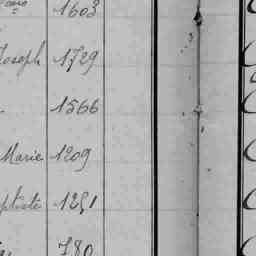 1603
Joseph 1729
1566
Marie 1209
1251
780